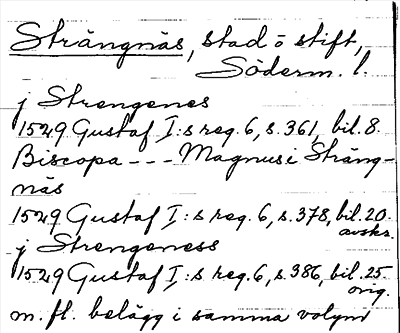 Strängnäs, stad o stift,
Söderm. l.
j Strengenes
1529 Gustaf I:s reg. 6, s. 361, bil. 8.
Biscopa --- Magnus i Sträng-
näs
1529 Gustaf I:s reg. 6, s. 378, bil. 20.
avskr.
j Strengeness
1529 Gustaf I:s reg. 6, s. 386, bil. 25
orig.
m. fl. belägg i samma volym